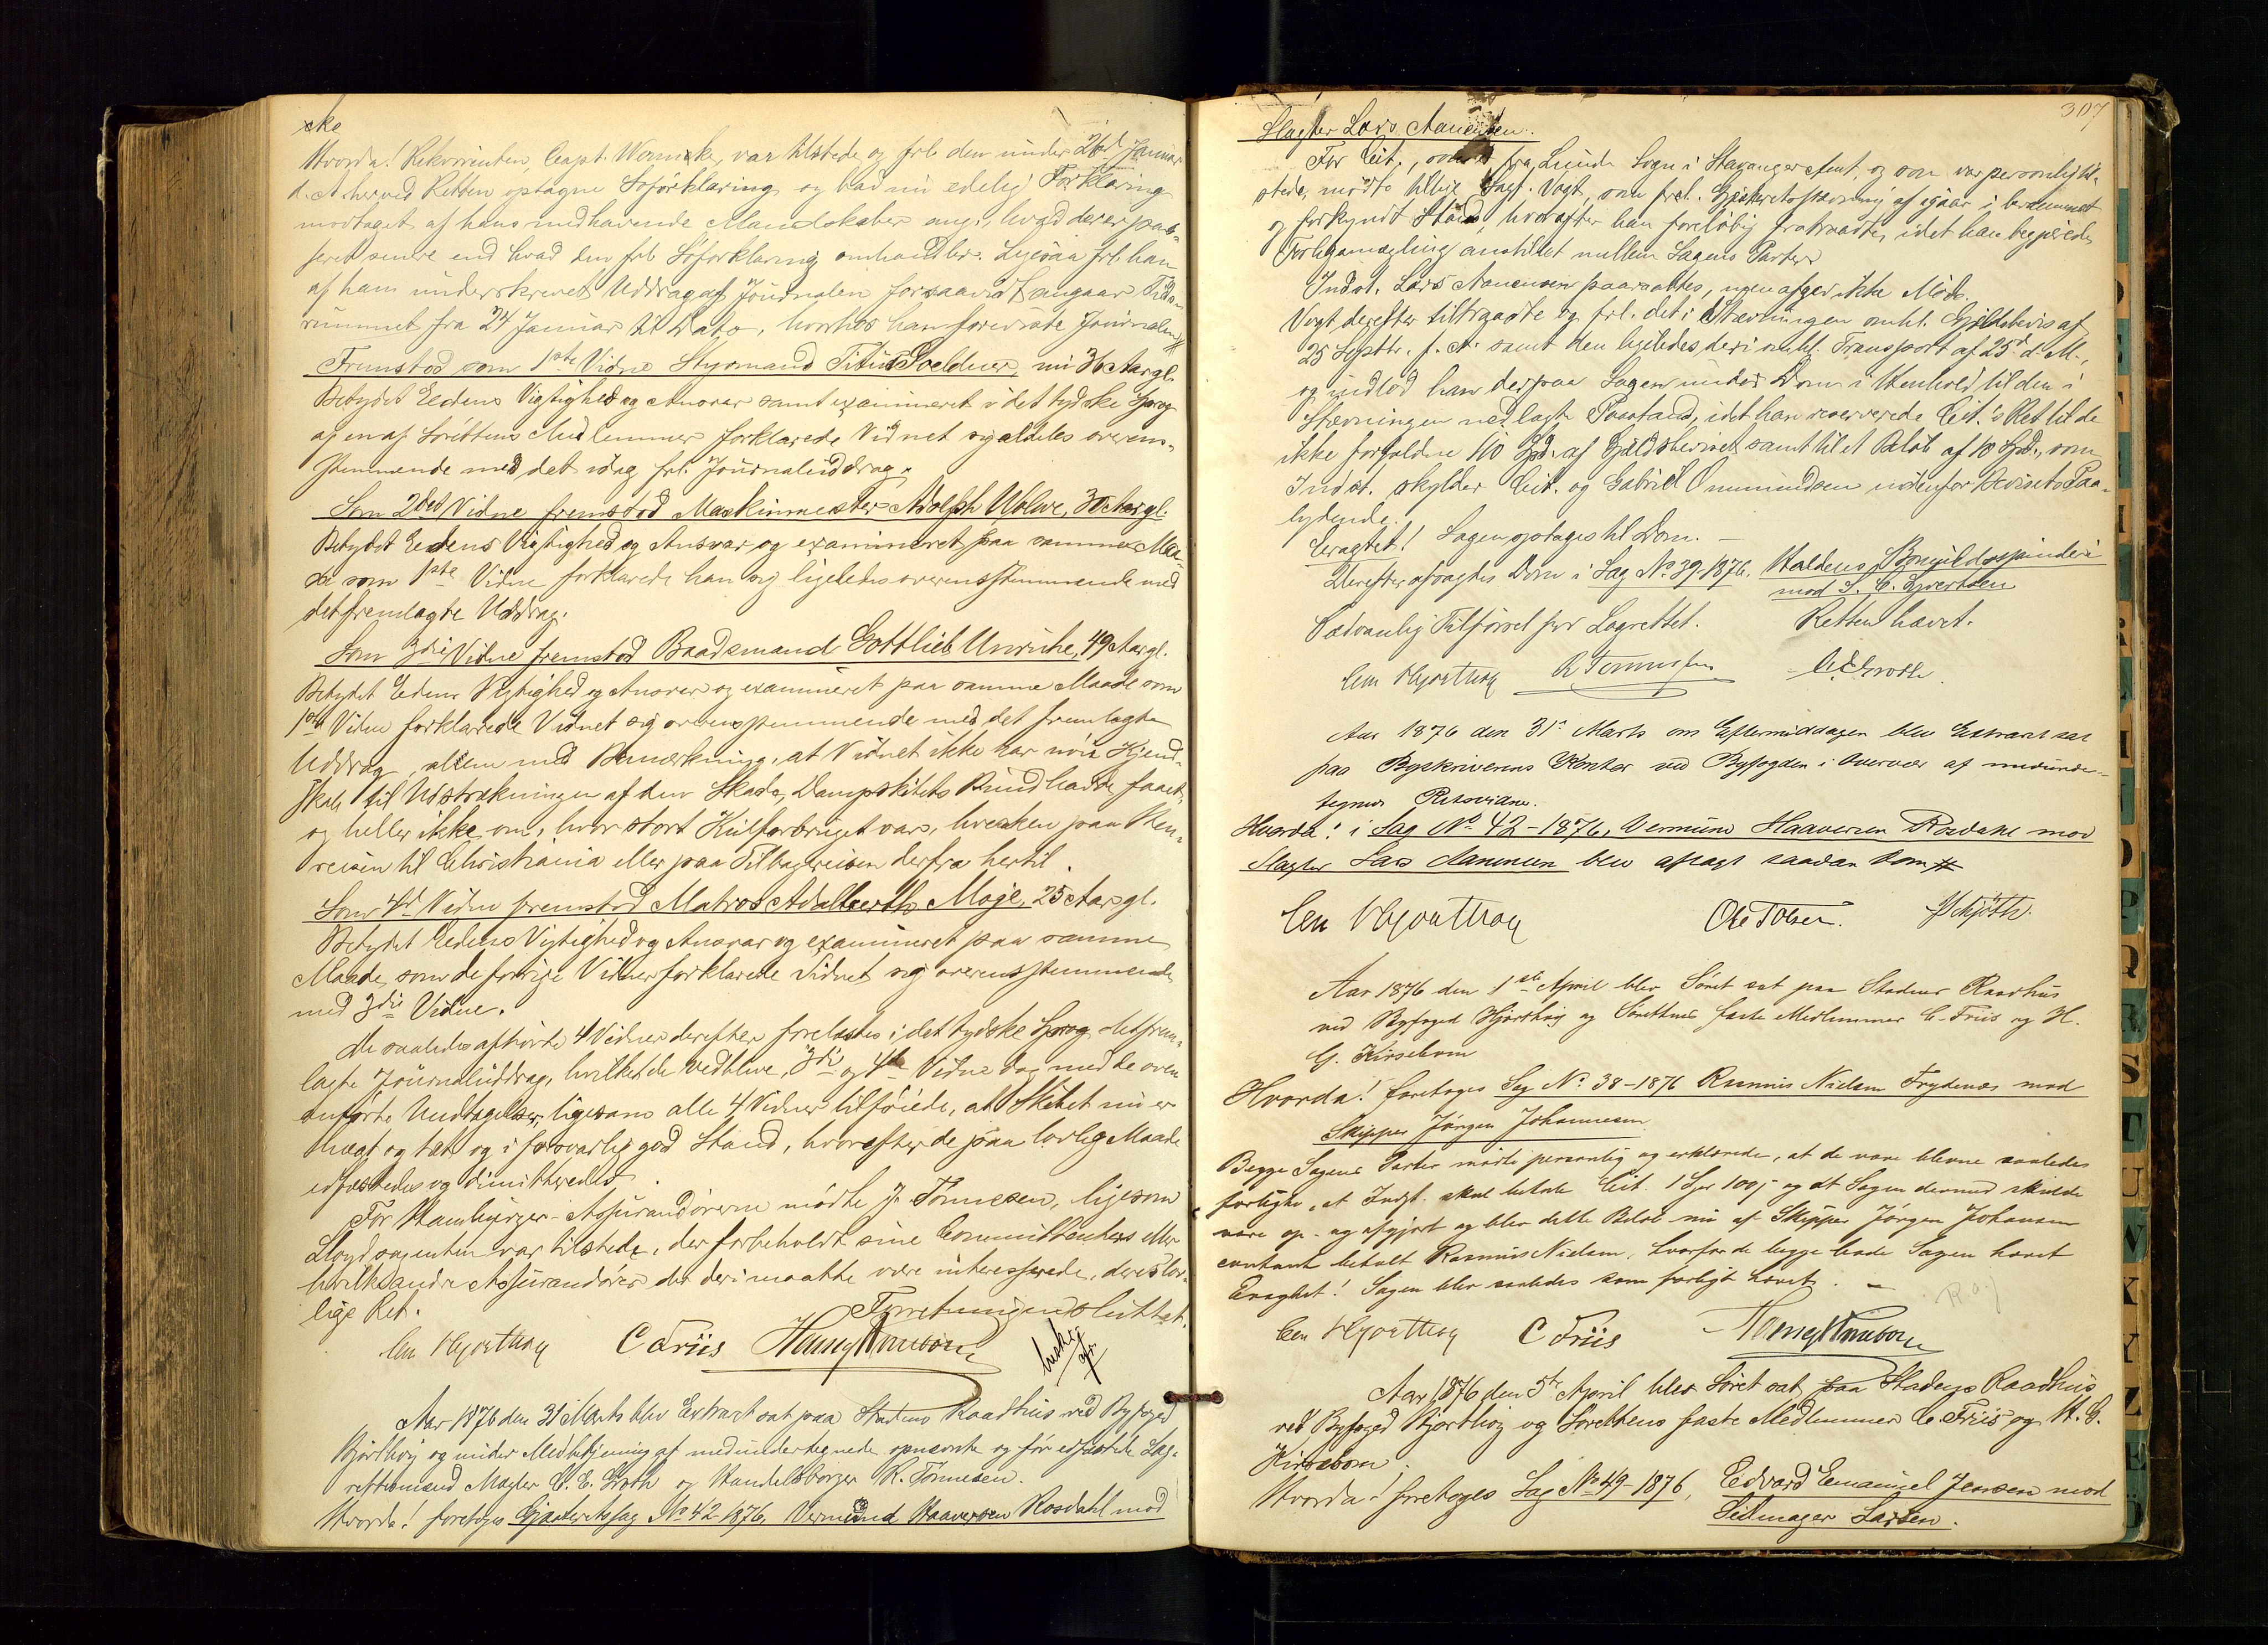 ske
Hvorda! Rekvirenten, Capt. Wernske, var tilstede og frl. den under 26d Januar
d. A. her ved Retten optagne Søforklaring og bad nu edelig Forklaring
modtaget af hans medhavende Mandskaber ang. hvad der er pas-
seret senere end hvad den frl. Søforklaring omhandler. Ligesaa frl. han
af ham underskrevet Uddrag af Journalen forsaavidt angaar Tids-
rummet fra 24 Januar til Dato, hvorhos han foreviste Journalen #
Fremstod som 1ste Vidne Styrmand Titus Soeldner, nu 36 Aar gl.
Betydet Eedens Vigtighed og Ansvar samt examineret i det tydske Sprog
af en af Sørettens Medlemmer forklarede Vidnet sig aldeles overens-
stemmende med det idag frl. Journaluddrag.
Som 2det Vidne fremstod Maskinmester Adolph Wolue, 30 Aar gl.
Betydet Eedens Vigtighed og Ansvar og examineret paa samme Maa-
de som 1ste Vidne forklarede han sig ligeledes overensstemmende med
det fremlagte Uddrag.
Som 3die Vidne fremstod Baadsmand Gottlieb Unruhe, 49 Aar gl.
Betydet Edens Vigtighed og Ansvar og examineret paa samme Maade som
1ste Vidne forklarede Vidnet sig overensstemmende med det fremlagte
Uddrag, alene med Bemærkning, at Vidnet ikke har nøie Kjend-
skab til Udstrækningen af den Skade, Dampskibets Bund havde faaet,
og heller ikke om, hvor stort Kulforbruget var, hverken paa Hen-
reisen til Christiania eller paa Tilbagereisen derfra hertil.
Som 4d Vidne fremstod Matros Adalberth Moje, 25 Aar gl.
Betydet Eedens Vigtighed og Ansvar og examineret paa samme
Maade som de forrige Vidner forklarede Vidnet sig overensstemmende
med 3die Vidne.
De saaledes afhørte 4 Vidner derefter forelæstes i det tydske Sprog det frem-
lagte Journaluddrag, hvilket de vedbleve, 3die og 4de Vidne dog med de oven
anførte Undtagelser, ligesom alle 4 Vidner tilføiede, at Skibet nu er
tægt og tæt og i forsvarlig god Stand, hvorefter de paa lovlig Maade
edfæstedes og dimitteredes.
For Hamburger-Assurandørerne mødte J. Tønnesen, ligesom
Lloydsagenten var tilstede, der forbeholdt sine Committenters eller
hvilkesomhelst andre Assurandører der deri maatte være interesserede, deres lov-
lige Ret.
Forretningen sluttet.
Cen Hjorthøy C Friis
Aar 1876 den 31 Marts blev Extraret sat paa Stadens Raadhus ved Byfoged
Hjorthøy og under Medbetjening af medundertegnede opnævnte og før edfæstede Lag-
rettemænd Mægler C. E. Groth og Handelsborger R. Tønnesen.
Hvorda! foretoges Gjæsteretssag No 42-1876, Vermund Haaversen Rosdahl mod
307
Slagter Lars Aanensen.
For Cit., som er fra Lunde Sogn i Stavanger Amt, og som var personlig til-
stede, mødte tillige Sagf. Vogt, som frl. Gjæsteretsstævning af igaar i berammet
og forkyndt Stand, hvorefter han foreløbig fratraadte, idet han begjærede
Forligsmægling anstillet mellem Sagens Parter.
Indst. Lars Aanensen paaraabtes, men afgav ikke Møde.
Vogt derefter tiltraadte og frl. det i Stævningen omhl. Gjældsbevis af
25 Septbr. f. A. samt den ligeledes deri omhl. Transport af 25d d. M.,
og indlod han derpaa Sagen under Dom i Henhold til den i
Stævningen nedlagte Paastand, idet han reserverede Cit.s Ret til de
ikke forfaldne 110 Spd. af Gjældsbeviset samt til et Beløb af 10 Spd., som
Indst. skylder Cit. og Gabriel Ommundsen udenfor Bevisets Paa-
lydende.
Eragtet! Sagen optages til Dom.
Derefter afsagdes Dom i Sag No 39-1876. Haldens Bomuldsspinderi
mod S. C. Syvertsen
Sædvanlig Tilførsel for Lagrettet. Retten hævet.
Cen Hjorthøy R Tønnesen C. E. Groth
Aar 1876 den 31te Marts om Eftermiddagen blev Extraret sat
paa Byskriverens Kontor ved Byfogden i Overvær af medunder-
tegnede Retsvidne.
Hvorda! i Sag No 42-1876, Vermund Haaversen Rosdahl mod
Slagter Lars Aanensen blev afsagt saadan Dom #
Cen Hjorthøy Ole T Olsen. Schjøth.
Aar 1876 den 1ste April blev Søret sat paa Stadens Raadhus
ved Byfoged Hjorthøy og Sørettens faste Medlemmer C. Friis og H.
G. Kirsebom
Hvorda! foretoges Sag No 38-1876 Rasmus Nielsen Frydenæs mod
Skipper Jørgen Johannesen.
Begge Sagens Parter mødte personlig og erklærede, at de vare blevne saaledes
forligte, at Indst. skal betale Cit. 1 Spd 100s og at Sagen dermed skulde
være op- og afgjort og blev dette Beløb nu af Skipper Jørgen Johansen
contant betalt Rasmus Nielsen, hvorfor de begge bade Sagen hævet
Eragtet! Sagen blev saaledes som forligt hævet.
Cen Hjorthøy C Friis
Aar 1876 den 5te April blev Søret sat paa Stadens Raadhus
ved Byfoged Hjorthøy og Sørettens faste Medlemmer C. Friis og H. G.
Kirsebom.
Hvorda! foretoges Sag No 49-1876, Edvard Emanuel Jensen mod
Seilmager Larsen.
O P Q R S T U X Y Z